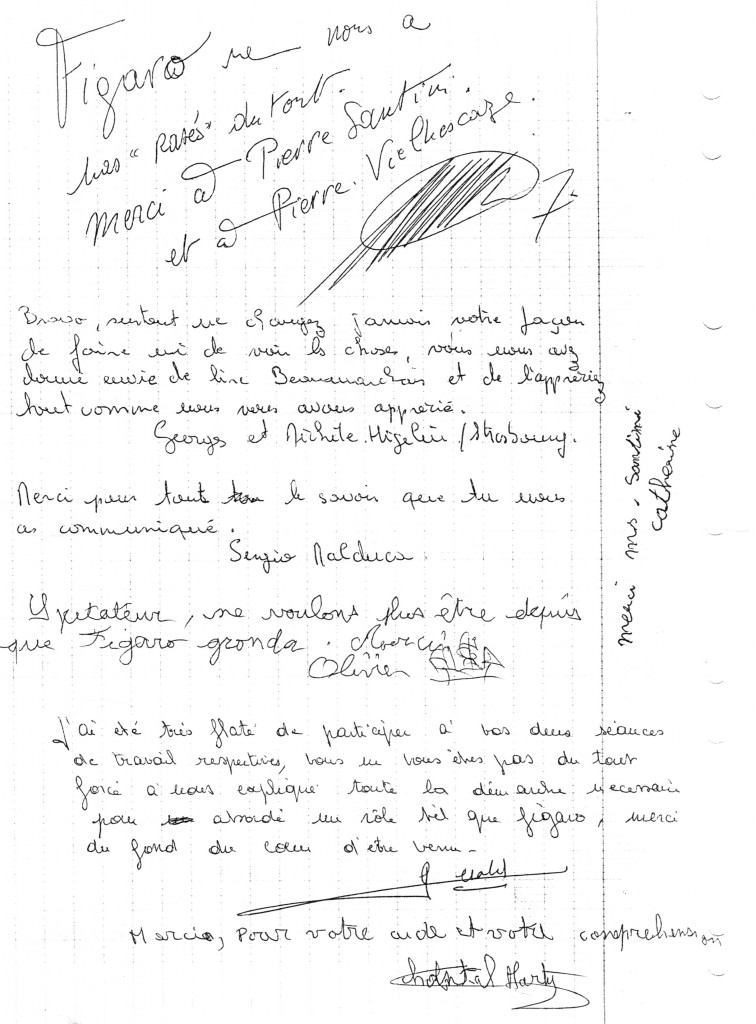 Figaro ne nous a
pas "rasés" du tout.
Merci à Pierre Santini.
et à Pierre Vielhescaze.
Bravo, surtout ne changez jamais votre façon
de faire ni de voir les choses, vous nous avez
donné envie de lire Beaumarchais et de l'apprécier
tout comme nous vous avons apprécié.
Georges et Michèle Higelin / Strasbourg.
Merci pour tout le savoir que tu nous
as communiqué.
Sergio Malduca
Spectateur, ne voulons plus être depuis
que Figaro gronda. Merci
Olivier
J'ai été très flaté de participer à vos deux séances
de travail respectives, vous ne vous êtes pas du tout
forcé à nous expliqué toute la démarche necessaire
pour abordé un rôle tel que figaro, merci
du fond du coeur d'être venu.
Mercie, Pour votre aide et votre comprehension
Chantal Marty
merci mr. Santini
catherine